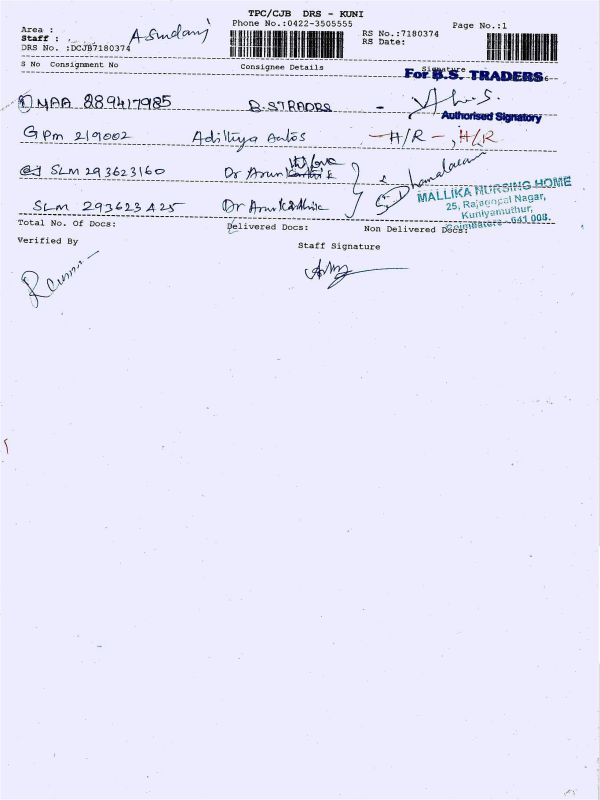 TPC/CJB DRS - KUNI
Phone No.:0422-3505555
Page No.:1
Area :
Staff :
DRS No. :DCJB7180374
RS No.:7180374
RS Date:
S No Consignment No Consignee Details Signature
For B.S. TRADERS
① MAA 889417985 B.STRADRS -
Authorised Signatory
GPM 219002 Adithya Autos - H/R - , H/R
SLM 293623160 Dr Arun
SLM 293623425 Dr Arun
MALLIKA NURSING HOME
25, Rajagopal Nagar,
Kuniyamuthur,
Coimbatore - 641 008.
Total No. Of Docs: Delivered Docs: Non Delivered Docs:
Verified By Staff Signature